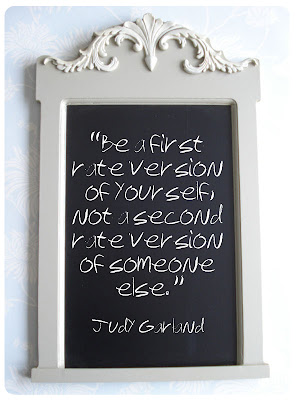 "Be a first
rate version
of yourself,
not a second
rate version
of someone
else."
Judy Garland